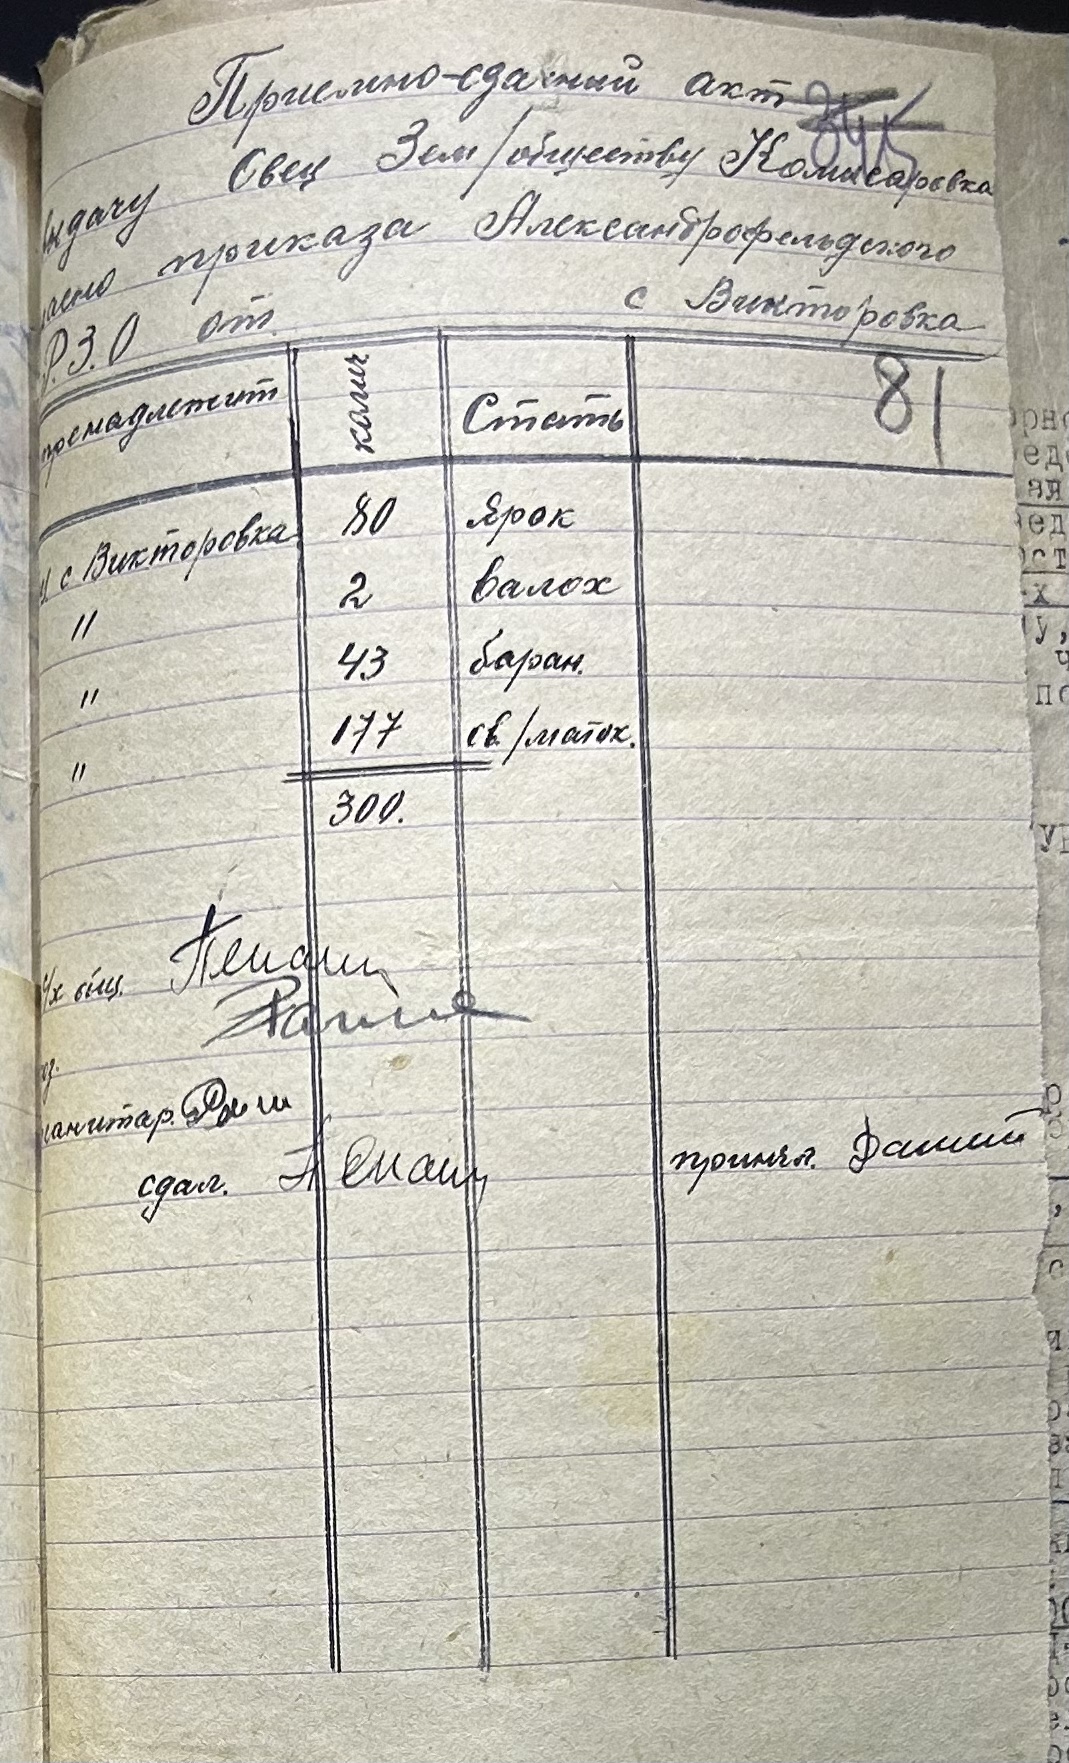 Приемно-сдатний акт
выдачу Овец Зем/обществу Комисаровка
ласно приказа Александрофельдского
Р.З.О от. с Викторовка
пренадлежит колич Стать 81
с Викторовка 80 Ярок
" 2 валох
" 43 баран.
" 177 св./маток.
300.
общ.
санитар.
сдал. принял.